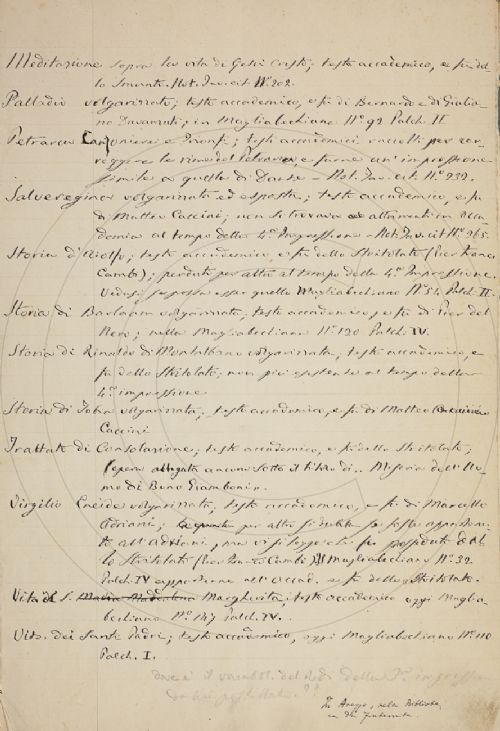 Meditazione sopra la vita di Gesù Cristo; testo accademico, e fu del
lo Smunto. Not. Inv. cit. N.º 202.
Palladio volgarizzato; testo accademico, e fu di Bernardo e di Giulia-
no Davanzati; in Magliabechiano N.º 92 Palch. II
Petrarca Canzoniere e Trionfi; testi accademici raccolti per cor-
reggere le rime del Petrarca, e farne un'impressione
simile a quella di Dante - Not. Inv. cit. N.º 232.
Salveregina volgarizzata ed esposta; testo accademico, e fu
di Matteo Caccini; non si trovava altrimenti in Acca-
demia al tempo della 4.ª Impressione - Not. Inv. cit. N.º 265.
Storia d'Aiolfo; testo accademico, e fu dello Stritolato (Pier Franc.
Cambi); perduto per altro al tempo della 4.ª Impressione.
Vedasi se possa esser quello Magliabechiano N.º 54 Palch. II.
Storia di Barlaam volgarizzata, testo accademico, e fu di Pier del
Nero; nella Magliabechiana N.º 120 Palch. IV.
Storia di Rinaldo di Montalbano volgarizzata, testo accademico, e
fu dello Stritolato; non più esistente al tempo della
4.ª impressione
Storia di Tobia volgarizzata, testo accademico, e fu di Matteo
Caccini
Trattato di Consolazione; testo accademico, e fu dello Stritolato;
l'opera allegata ancora sotto il titolo di.. Miseria dell'Uo-
mo di Bono Giamboni.
Virgilio Eneide volgarizzata, testo accademico, e fu di Marcello
Adriani; per altro si dubita se fosse apparte-
nuto all'Adriani, ma vi si legge che fu posseduto dal-
lo Stritolato (Pier Franc.º Cambi) Magliabechiano N.º 32
Palch. IV appartenne all'Accad. e fu dello Stritolato.
Vita di S. Maria Maddalena Margherita, testo accademico oggi Maglia-
bechiano N.º 147 Palch. IV.
Vite dei Santi Padri; testo accademico, oggi Magliabechiano N.º 110
Palch. I.
In Arezzo, nella Biblioteca
della Fraternita.